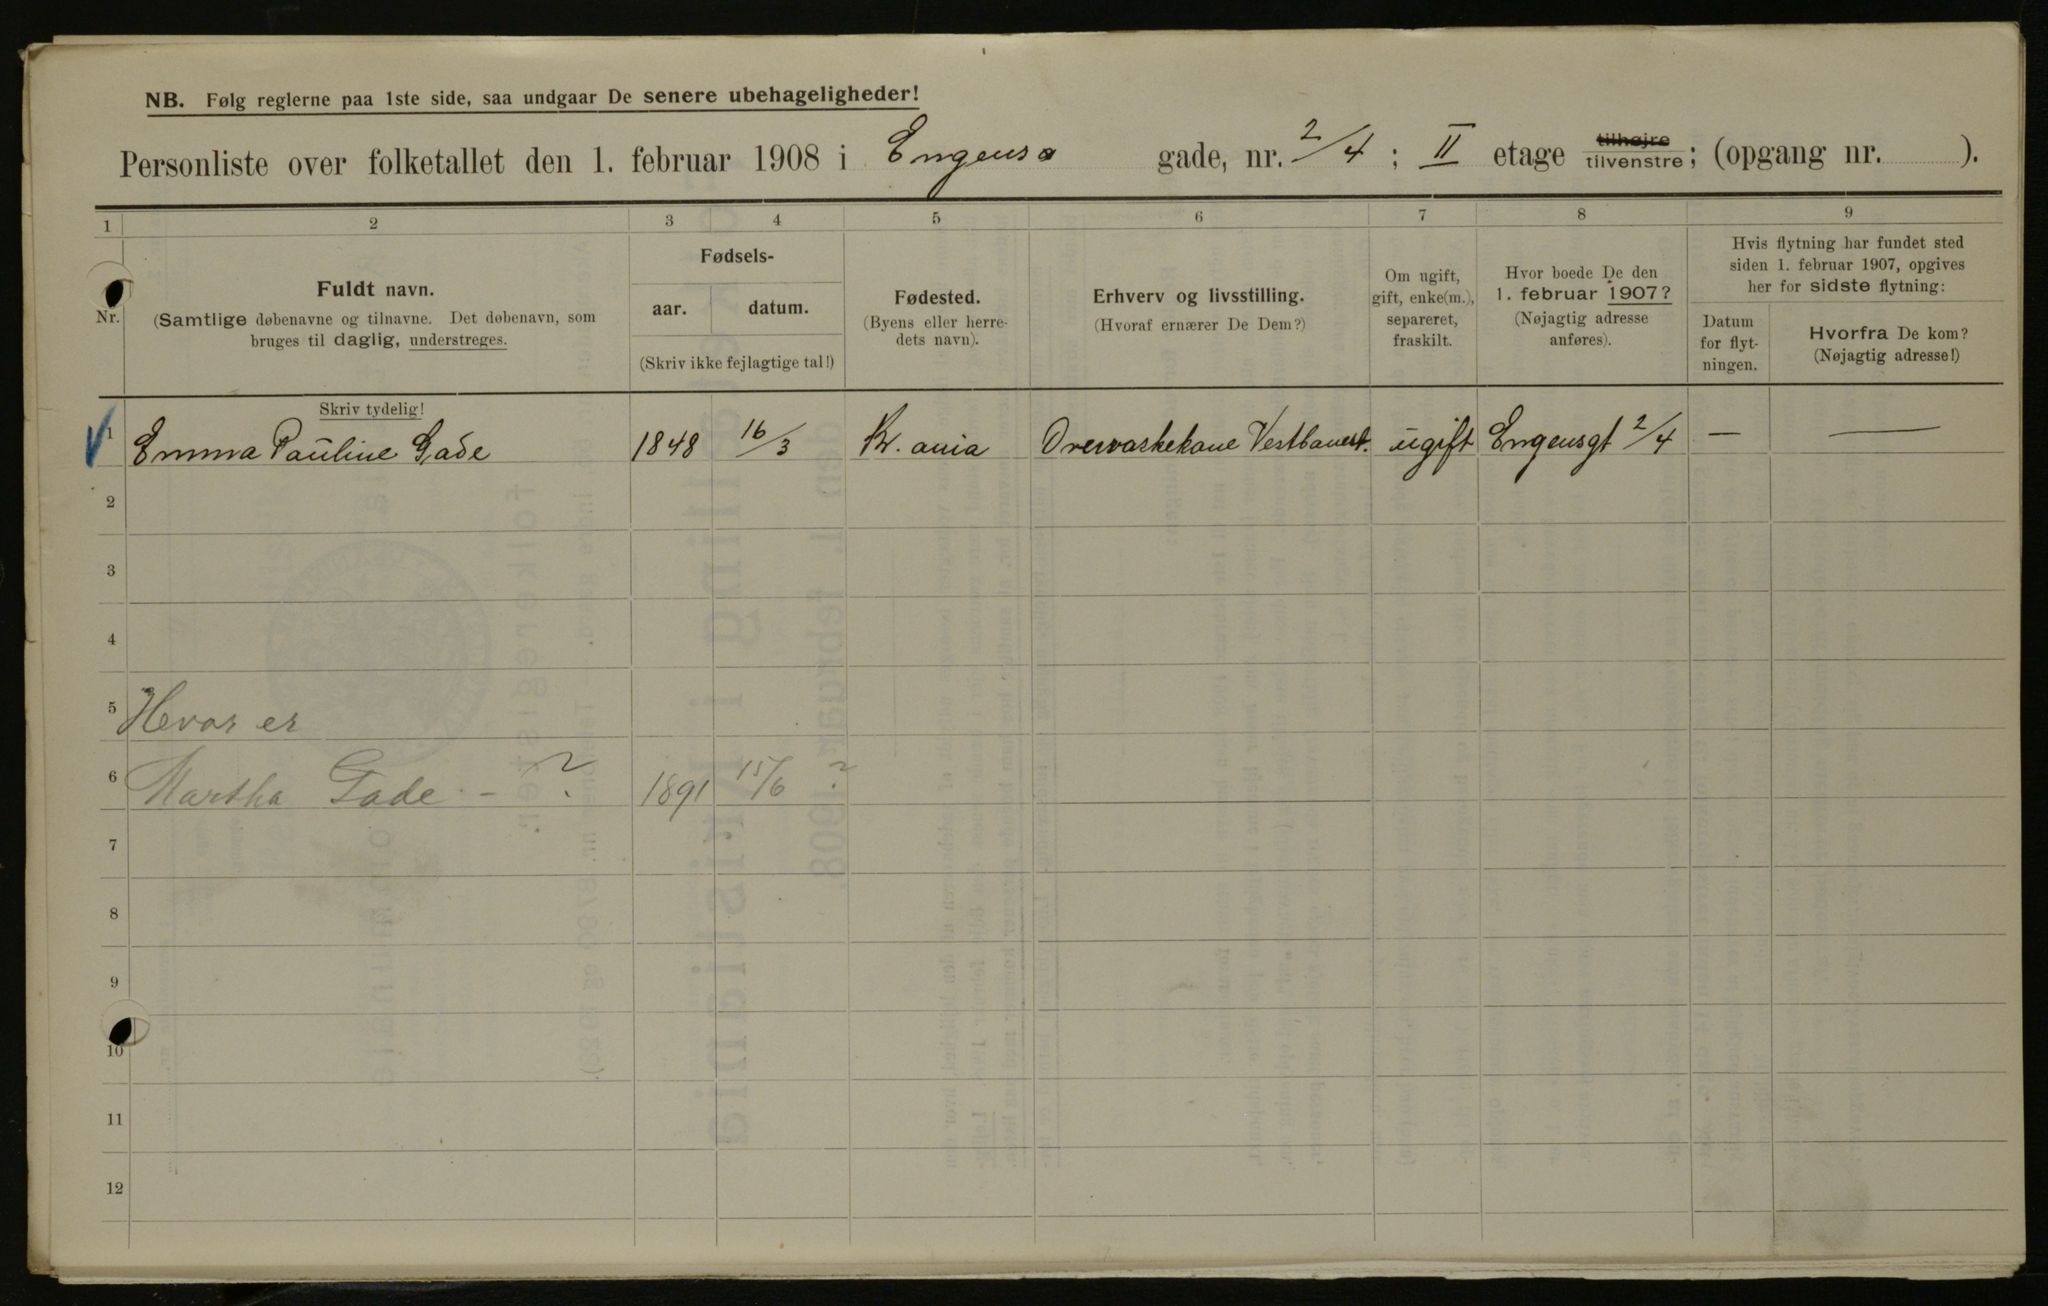 NB. Følg reglerne paa 1ste side, saa undgaar De senere ubehageligheder!
Personliste over folketallet den 1. februar 1908 i Engens gade, nr. 2/4 ; II etage tilhøjre tilvenstre; (opgang nr. ).
1 2 3 4 5 6 7 8 9
Nr.
Fuldt navn.
(Samtlige døbenavne og tilnavne. Det døbenavn, som
bruges til daglig, understreges.
Skriv tydelig!
Fødsels-
aar. datum.
(Skriv ikke fejlagtige tal!)
Fødested.
(Byens eller herre-
dets navn).
Erhverv og livsstilling.
(Hvoraf ernærer De Dem?)
Om ugift,
gift, enke(m.),
separeret,
fraskilt.
Hvor boede De den
1. februar 1907?
(Nøjagtig adresse
anføres).
Hvis flytning har fundet sted
siden 1. februar 1907, opgives
her for sidste flytning:
Datum
for flyt-
ningen.
Hvorfra De kom?
(Nøjagtig adresse!)
1 Emma Pauline Gade 1848 16/3 Kr. ania Vestbanest. ugift Engensgt 2/4 — —
2
3
4
5 Hvor er
6 Martha Gade - ? 1891 15/6 ?
7
8
9
10
11
12